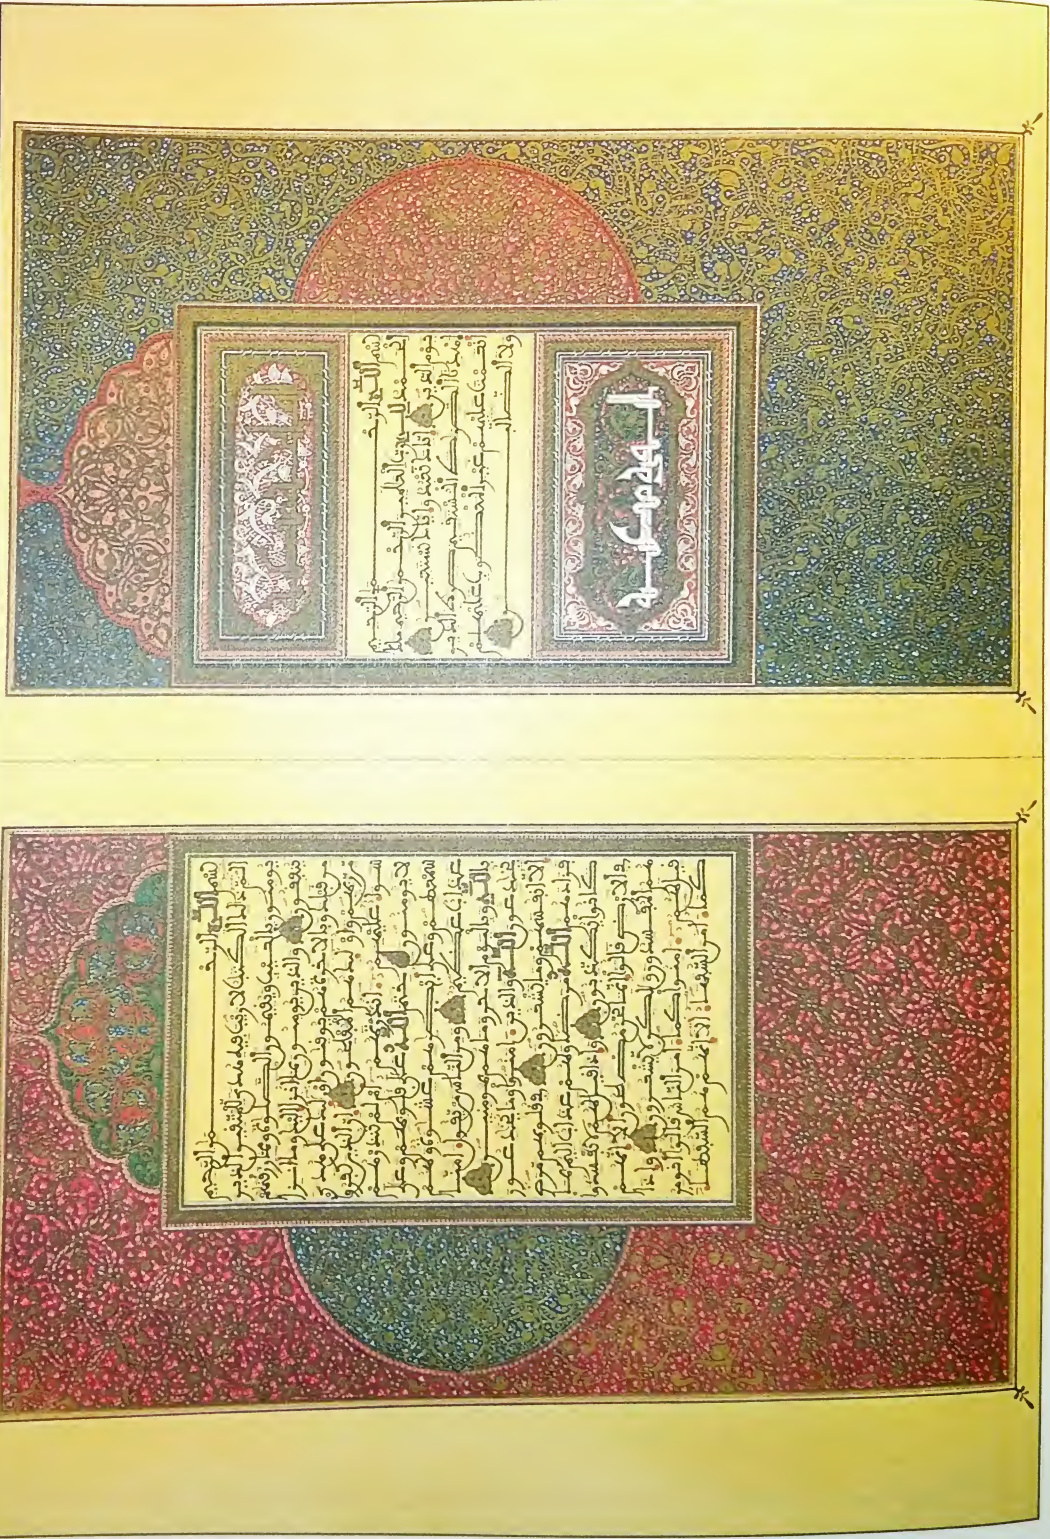 بسم الله الرحمن الرحيم
الحمد لله رب العالمين الرحمن الرحيم ملك
يوم الدين اياك نعبد واياك نستعين
اهدنا الصراط المستقيم صراط الذين
انعمت عليهم غير المغضوب عليهم
ولا الضالين
بسم الله الرحمن الرحيم
الم ذلك الكتاب لا ريب فيه هدى للمتقين الذين
يومنون بالغيب ويقيمون الصلوة ومما رزقنهم
ينفقون والذين يومنون بما انزل اليك وما انزل
من قبلك وبالاخرة هم يوقنون اولئك على هدى
من ربهم واولئك هم المفلحون ان الذين كفروا
سواء عليهم ءانذرتهم ام لم تنذرهم
لا يومنون ختم الله على قلوبهم وعلى
سمعهم وعلى ابصرهم غشوة ولهم
عذاب عظيم ومن الناس من يقول امنا
بالله وباليوم الاخر وما هم بمومنين
يخدعون الله والذين امنوا وما يخدعون
الا انفسهم وما يشعرون في قلوبهم مرض
فزادهم الله مرضا ولهم عذاب اليم بما
كانوا يكذبون واذا قيل لهم لا تفسدوا
في الارض قالوا انما نحن مصلحون الا انهم
هم المفسدون ولكن لا يشعرون واذا
قيل لهم امنوا كما امن الناس قالوا انومن
كما امن السفهاء الا انهم هم السفهاء